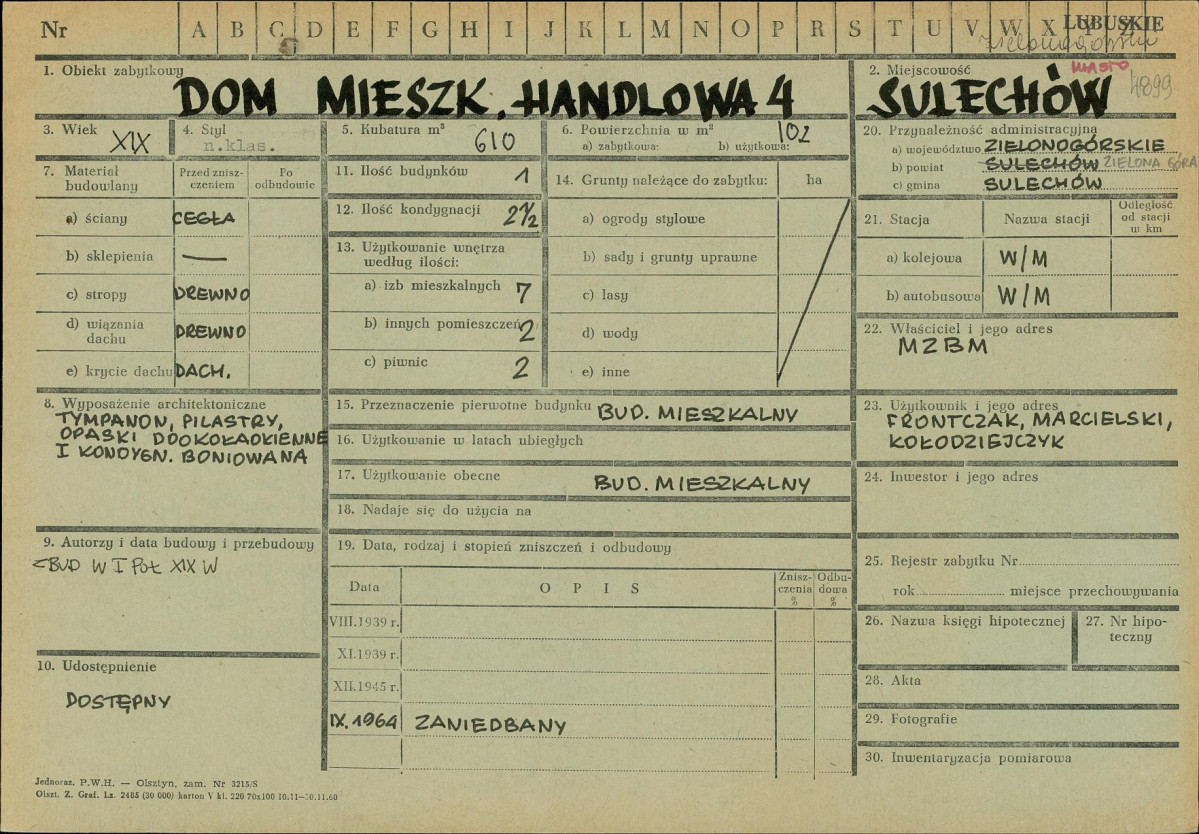 Nr A B C D E F G H I J K L M N O P R S T U V W X Y Z
LUBUSKIE
zielonogórskie
MIASTO
4899
1. Obiekt zabytkowy
DOM MIESZK. HANDLOWA 4
2. Miejscowość
SULECHÓW
3. Wiek
XIX
4. Styl
n.klas.
5. Kubatura m³
610
6. Powierzchnia w m²
102
a) zabytkowa: b) użytkowa:
7. Materiał budowlany
Przed znisz-
czeniem
Po
odbudowie
a) ściany CEGŁA
b) sklepienia —
c) stropy DREWNO
d) wiązania
dachu DREWNO
e) krycie dachu DACH.
8. Wyposażenie architektoniczne
TYMPANON, PILASTRY,
OPASKI DOOKOŁAOKIENNE
I KONDYGN. BONIOWANA
9. Autorzy i data budowy i przebudowy
BUD W I POŁ XIX W
10. Udostępnienie
DOSTĘPNY
11. Ilość budynków 1
12. Ilość kondygnacji 2 1/2
13. Użytkowanie wnętrza
według ilości:
a) izb mieszkalnych 7
b) innych pomieszczeń 2
c) piwnic 2
14. Grunty należące do zabytku: ha
a) ogrody stylowe
b) sady i grunty uprawne
c) lasy
d) wody
e) inne
15. Przeznaczenie pierwotne budynku BUD. MIESZKALNY
16. Użytkowanie w latach ubiegłych
17. Użytkowanie obecne BUD. MIESZKALNY
18. Nadaje się do użycia na
19. Data, rodzaj i stopień zniszczeń i odbudowy
Data
OPIS
Znisz-
czenia
%
Odbu-
dowa
%
VIII.1939 r.
XI.1939 r.
XII.1945 r.
IX.1964 ZANIEDBANY
20. Przynależność administracyjna
a) województwo ZIELONOGÓRSKIE
b) powiat SULECHÓW ZIELONA GÓRA
c) gmina SULECHÓW
21. Stacja
Nazwa stacji
Odległość
od stacji
w km
a) kolejowa W/M
b) autobusowa W/M
22. Właściciel i jego adres
MZBM
23. Użytkownik i jego adres
FRONTCZAK, MARCIELSKI,
KOŁODZIEJCZYK
24. Inwestor i jego adres
25. Rejestr zabytku Nr
rok miejsce przechowywania
26. Nazwa księgi hipotecznej
27. Nr hipo-
teczny
28. Akta
29. Fotografie
30. Inwentaryzacja pomiarowa
Jednoraz. P.W.H. — Olsztyn, zam. Nr 3215/S
Olszt. Z. Graf. Lz. 2485 (30 000) karton V kl. 220 70x100 10.11—30.11.60